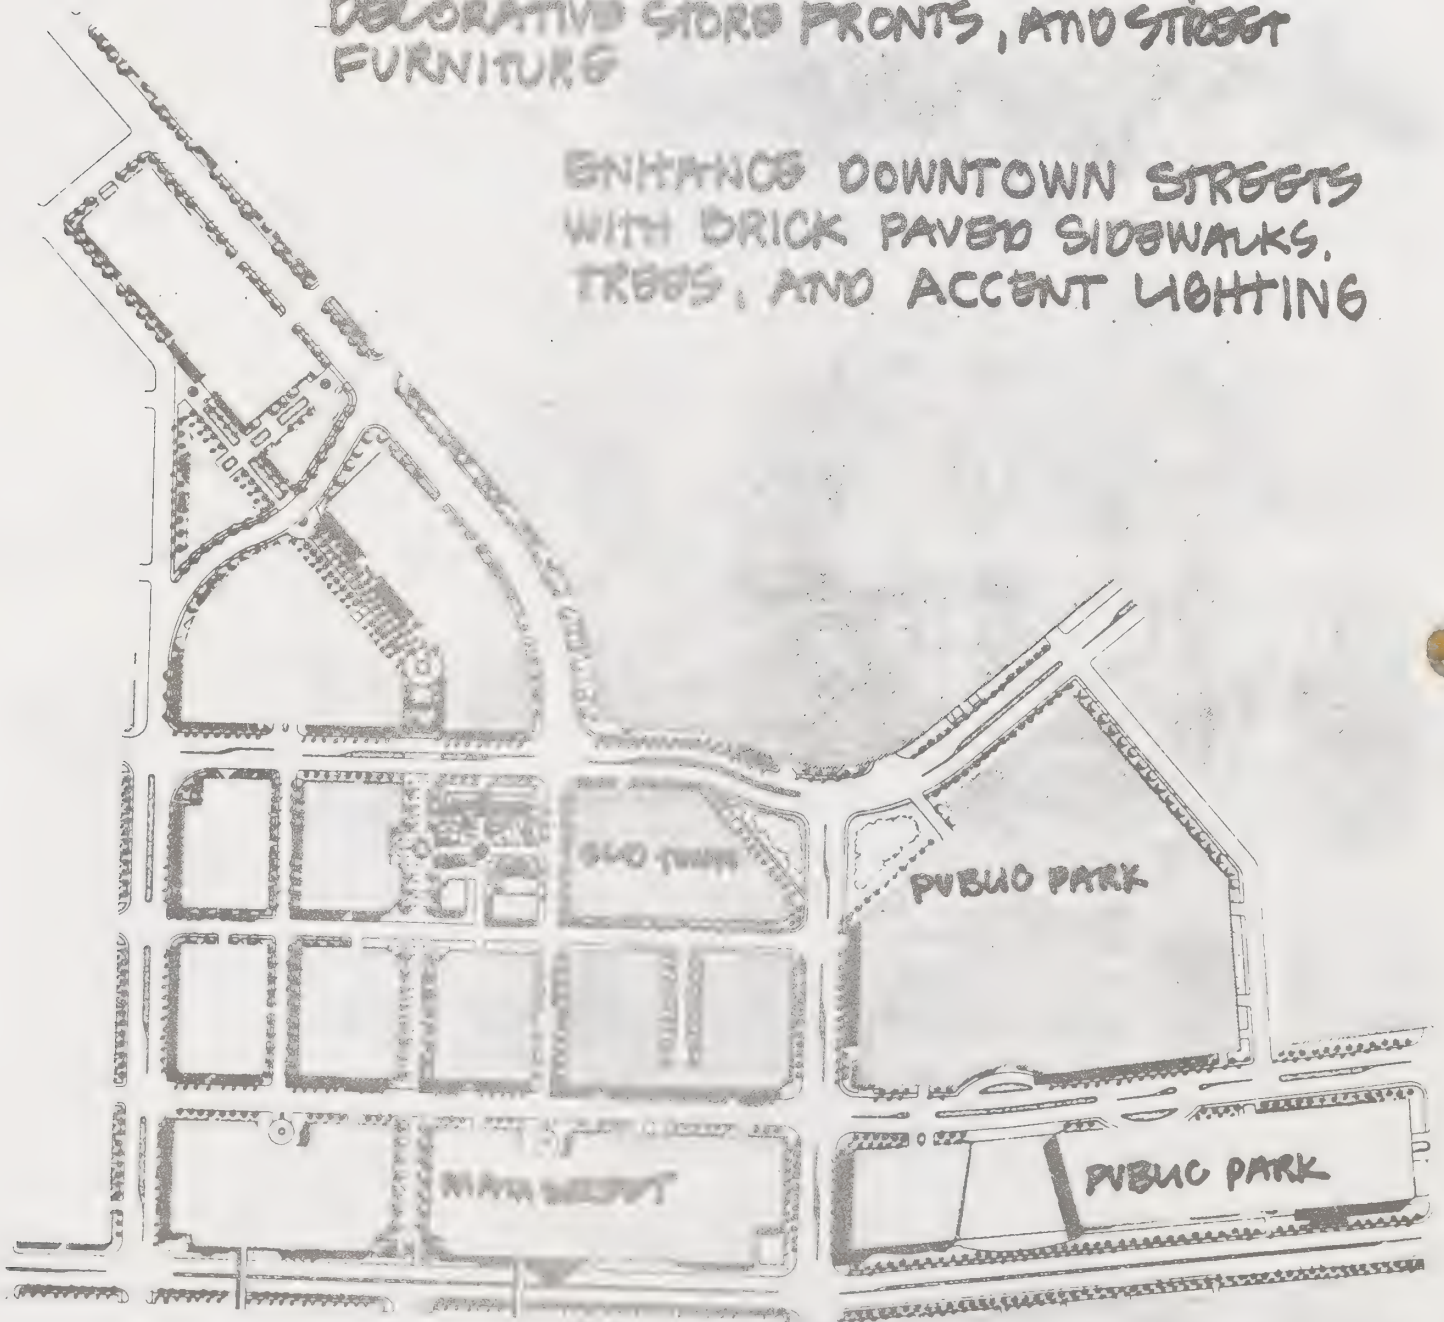 DECORATIVE STORE FRONTS, AND STREET
FURNITURE
ENHANCE DOWNTOWN STREETS
WITH BRICK PAVED SIDEWALKS,
TREES, AND ACCENT LIGHTING
OLD TOWN
PUBLIC PARK
MAIN STREET
PUBLIC PARK